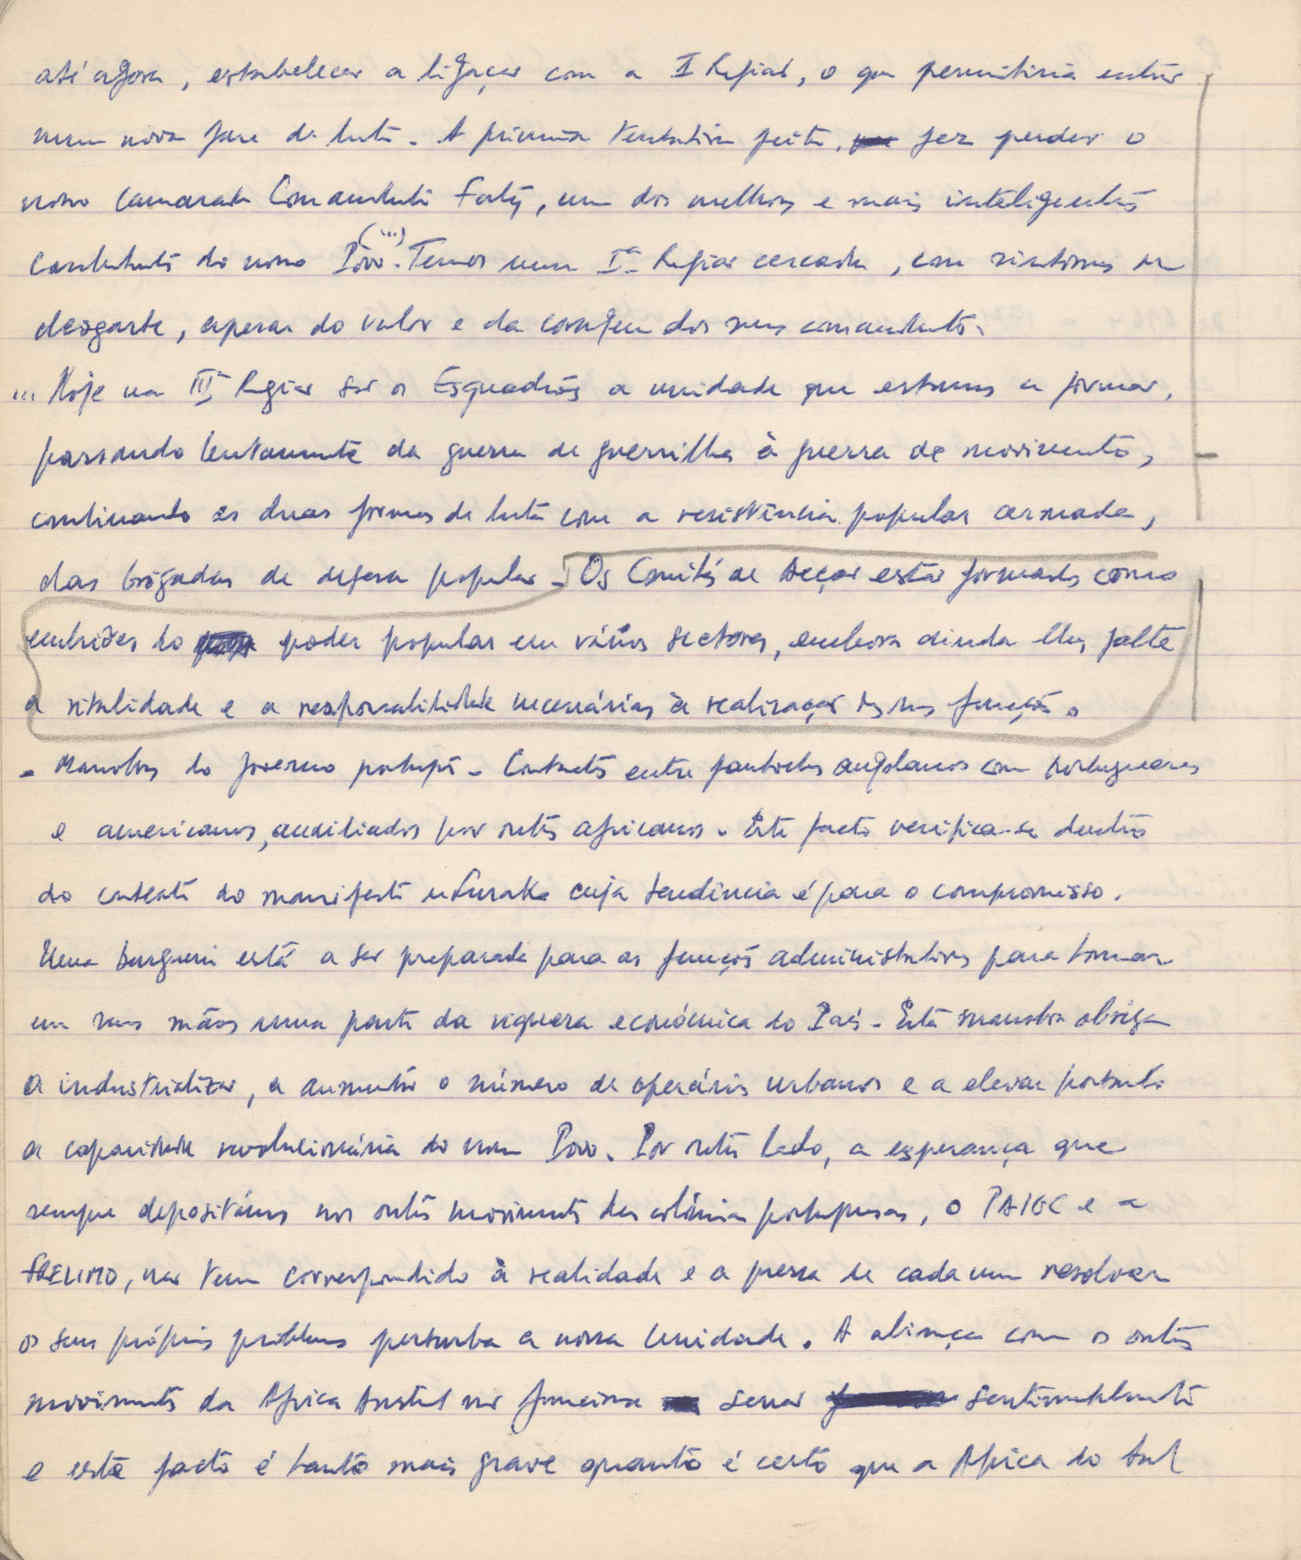 até agora, estabelecer a ligação com a I Região, o que permitiria entrar
numa nova fase da luta. A primeira tentativa feita, fez perder o
nosso camarada Comandante Forty, um dos melhores e mais inteligentes
combatentes do nosso Povo. (...) Temos uma Iª Região cercada, com sintomas de
desgaste, apesar do valor e da coragem dos seus comandantes.
... Hoje na IIIª Região são os Esquadrões a unidade que estamos a formar,
passando lentamente da guerra de guerrilha à guerra de movimento,
combinando as duas formas de luta com a resistência popular armada,
das brigadas de defesa popular. Os Comités de Acção estão formados como
embriões do poder popular em vários sectores, embora ainda lhes falte
a vitalidade e a responsabilidade necessárias à realização das suas funções.
- Manobras do governo português - Contactos entre fantoches angolanos com portugueses
e americanos, auxiliados por outros africanos. Este facto verifica-se dentro
do contexto do manifesto Lusaka cuja tendência é para o compromisso.
Uma burguesia está a ser preparada para as funções administrativas para tomar
em suas mãos uma parte da riqueza económica do País. Esta manobra obriga
a industrializar, a aumentar o número de operários urbanos e a elevar portanto
a capacidade revolucionária do nosso Povo. Por outro lado, a esperança que
sempre depositámos nos outros movimentos das colónias portuguesas, o PAIGC e a
FRELIMO, não tem correspondido à realidade e a pressa de cada um resolver
os seus próprios problemas perturba a nossa Unidade. A aliança com os outros
movimentos da África Austral não funciona senão sentimentalmente
e este facto é tanto mais grave quanto é certo que a África do Sul